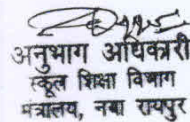 अनुभाग अधिकारी
स्कूल शिक्षा विभाग
मंत्रालय, नवा रायपुर